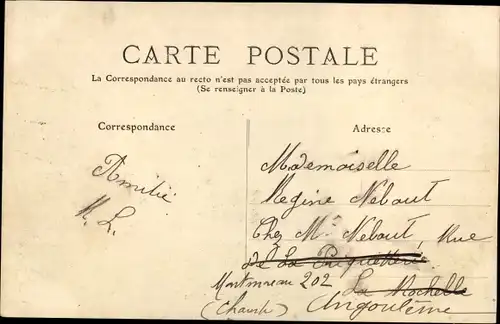 CARTE POSTALE
La Correspondance au recto n'est pas acceptée par tous les pays étrangers
(Se renseigner à la Poste)
Correspondance
Adresse
Amitié
M. L.
Mademoiselle
Regine Nebout
Chez Mr Nebout, Rue
de La
Montmoreau 202 La Rochelle
(Charente) Angoulême